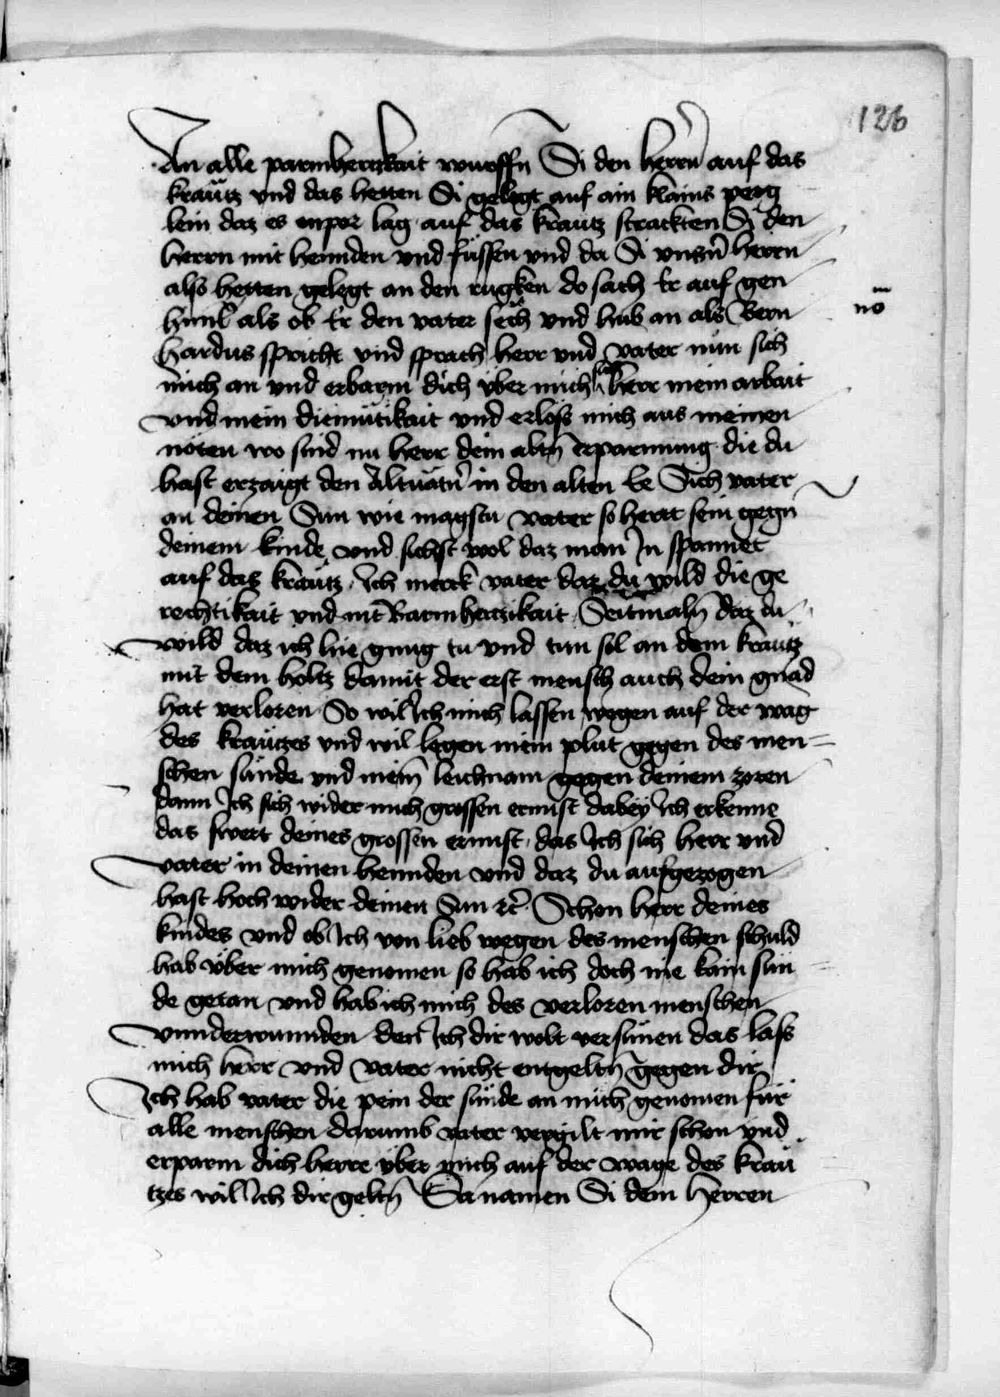 126
An alle parmhertzkait wurffn̄ Si den herrn̄ auf das
kräutz vnd das hetten Si gelegt auf ain klains perg
lein daz es enpor lag auf das kräutz strackten Si den
herrn mit hennden vnd füssen vnd da Si vnsn̄ herrn
also hetten gelegt an den rugken do sach Er auf gen
himl als ob Er den vater sech vnd hub an als Bern
hardus spricht vnd sprach herr vnd vater nun sich
mich an vnd erbarm dich über mich sich herr mein arbait
vnd mein diemütikait vnd erlöss mich aus meinen
nöten wo sind nu herr dein altn̄ erparmung die du
hast erzaigt den Altuätn̄ in den alten Ee Sich vater
an deinen Sun wie magstu vater so hertt sein gegn
deinem kinde vnd sichst wol daz man In spannet
auf das kräutz Ich merck vater daz du wild die ge
rechtikait vnd nit Barmhertzikait Seitmaln̄ daz du
wild daz ich hie gnug tu vnd tun sol an dem kräutz
mit dem holtz damit der erst mensch auch dein gnad
hat verloren So wil Ich mich lassen wegen auf der wag
des kräutzes vnd wil legen mein plut gegen des men=
schen sünde vnd mein̄ leichnam gegen deinem zoren
dann Ich sich wider mich grossen ernnst dabey Ich erkenne
das swert deines grossen ernnst das Ich sich herr vnd
vater in deinen hennden vnd daz du aufgezogen
hast hoch wider deinen Sun ꝛc̄ Schon herr deines
kindes vnd ob Ich von lieb wegen des menschen schuld
hab über mich genomen so hab ich doch nie kain sün
de getan vnd hab ich mich des verloren menschen
vnnderwunnden den Ich dir wolt versünen das lass
mich herr vnd vater nicht entgeltn̄ gegen dir
Ich hab vater die pein der sünde an mich genomen für
alle menschen darumb vater vergilt mir schon vnd
erparm dich herre über mich auf der wage des kräu
tzes wil Ich dir geltn̄ Da namen Si dem herren
no̅